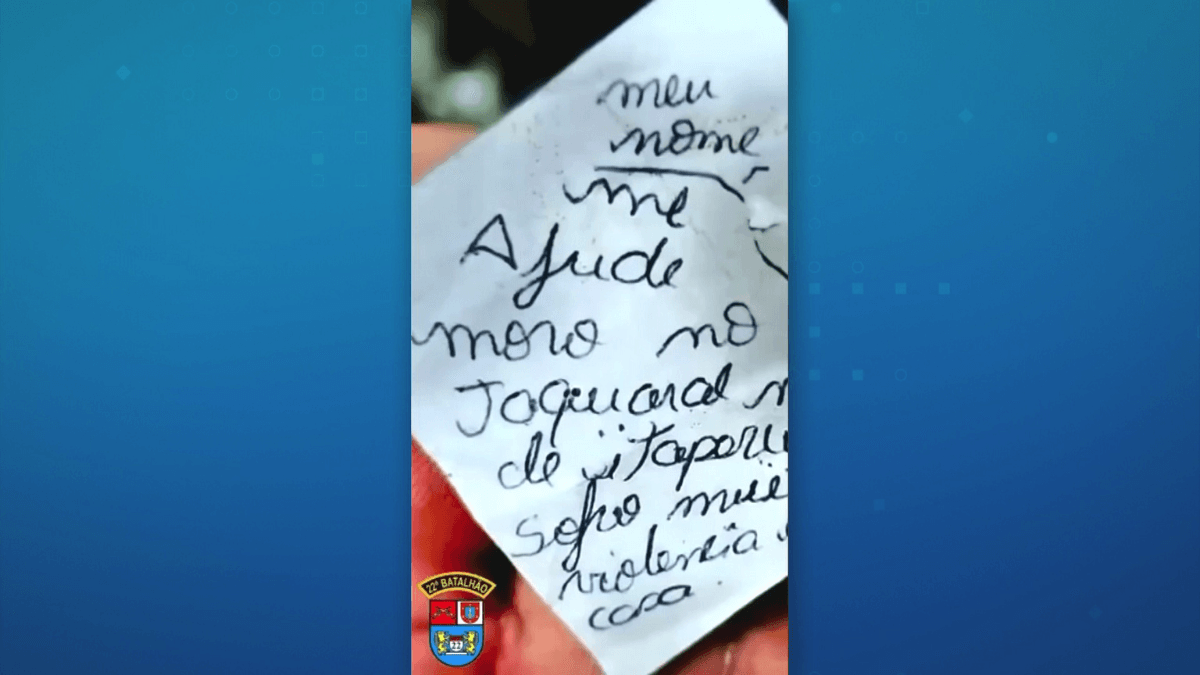 meu
nome
me
Ajude
moro no
Jaguaral
de itaperu
Sofro
violencia
casa.
22º BATALHÃO
22